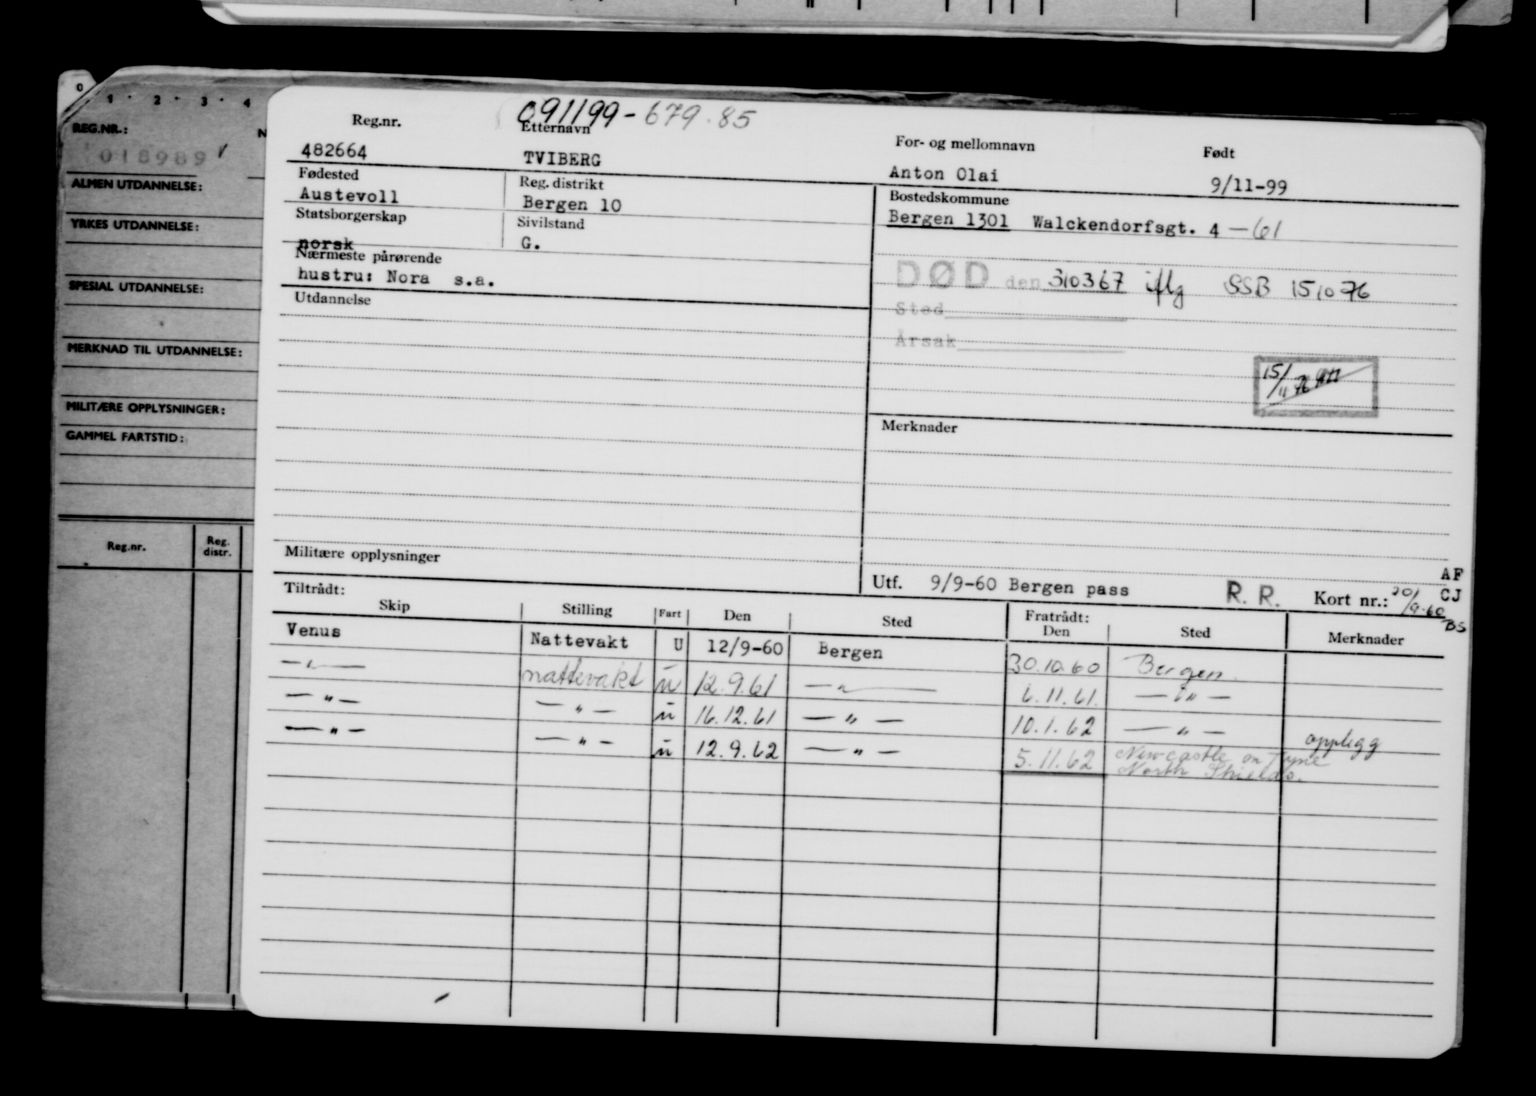 0 1 2 3 4
REG.NR.: N
018989
ALMEN UTDANNELSE:
YRKES UTDANNELSE:
SPESIAL UTDANNELSE:
MERKNAD TIL UTDANNELSE:
MILITÆRE OPPLYSNINGER:
GAMMEL FARTSTID:
Reg.nr. Reg. distr.
091199-679.85
Reg.nr. Etternavn For- og mellomnavn Født
482664 TVIBERG Anton Olai 9/11-99
Fødested Reg. distrikt Bostedskommune
Austevoll Bergen 10 Bergen 1301 Walckendorfsgt. 4 -61
Statsborgerskap Sivilstand
norsk G.
Nærmeste pårørende
hustru: Nora s.a.
DØD den 310367 iflg SSB 151076
Sted
Årsak
15/11 76
Utdannelse
Merknader
Militære opplysninger
Utf. 9/9-60 Bergen pass R. R. Kort nr.: 20/9-60
AF
CJ
BS
Tiltrådt: Fratrådt:
Skip Stilling Fart Den Sted Den Sted Merknader
Venus Nattevakt U 12/9-60 Bergen 30.10.60 Bergen
— " — nattevakt u 12.9.61 — " — 6.11.61 — " —
— " — — " — u 16.12.61 — " — 10.1.62 — " — opplegg
— " — — " — u 12.9.62 — " — 5.11.62 Newcastle on Tyne
North Shields.